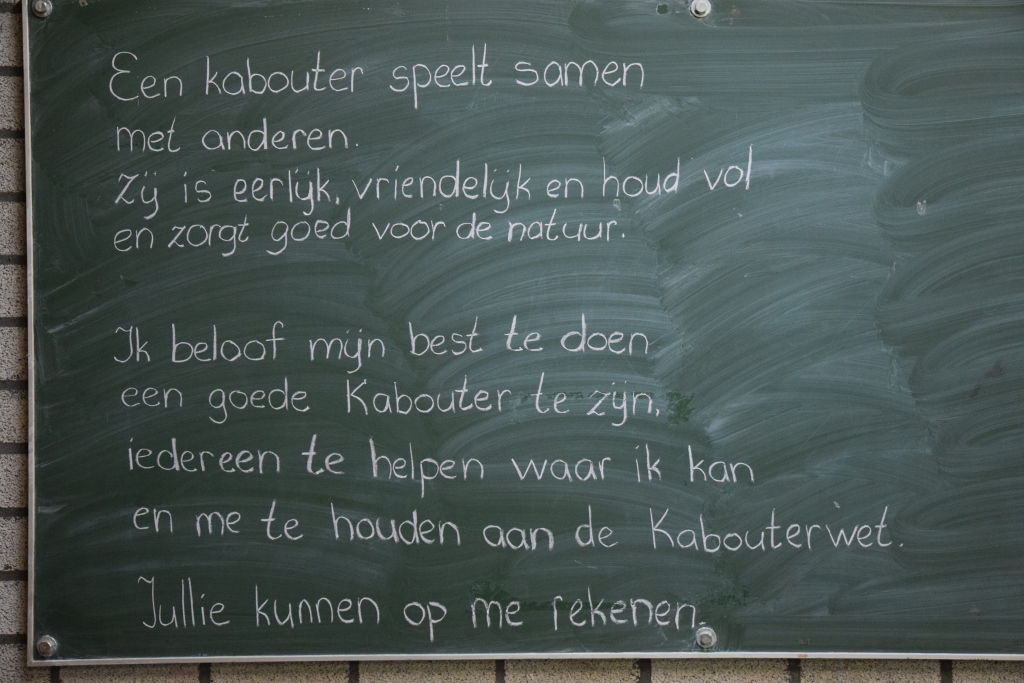 Een kabouter speelt samen
met anderen.
Zij is eerlijk, vriendelijk en houd vol
en zorgt goed voor de natuur.
Ik beloof mijn best te doen
een goede Kabouter te zijn,
iedereen te helpen waar ik kan
en me te houden aan de Kabouterwet.
Jullie kunnen op me rekenen.